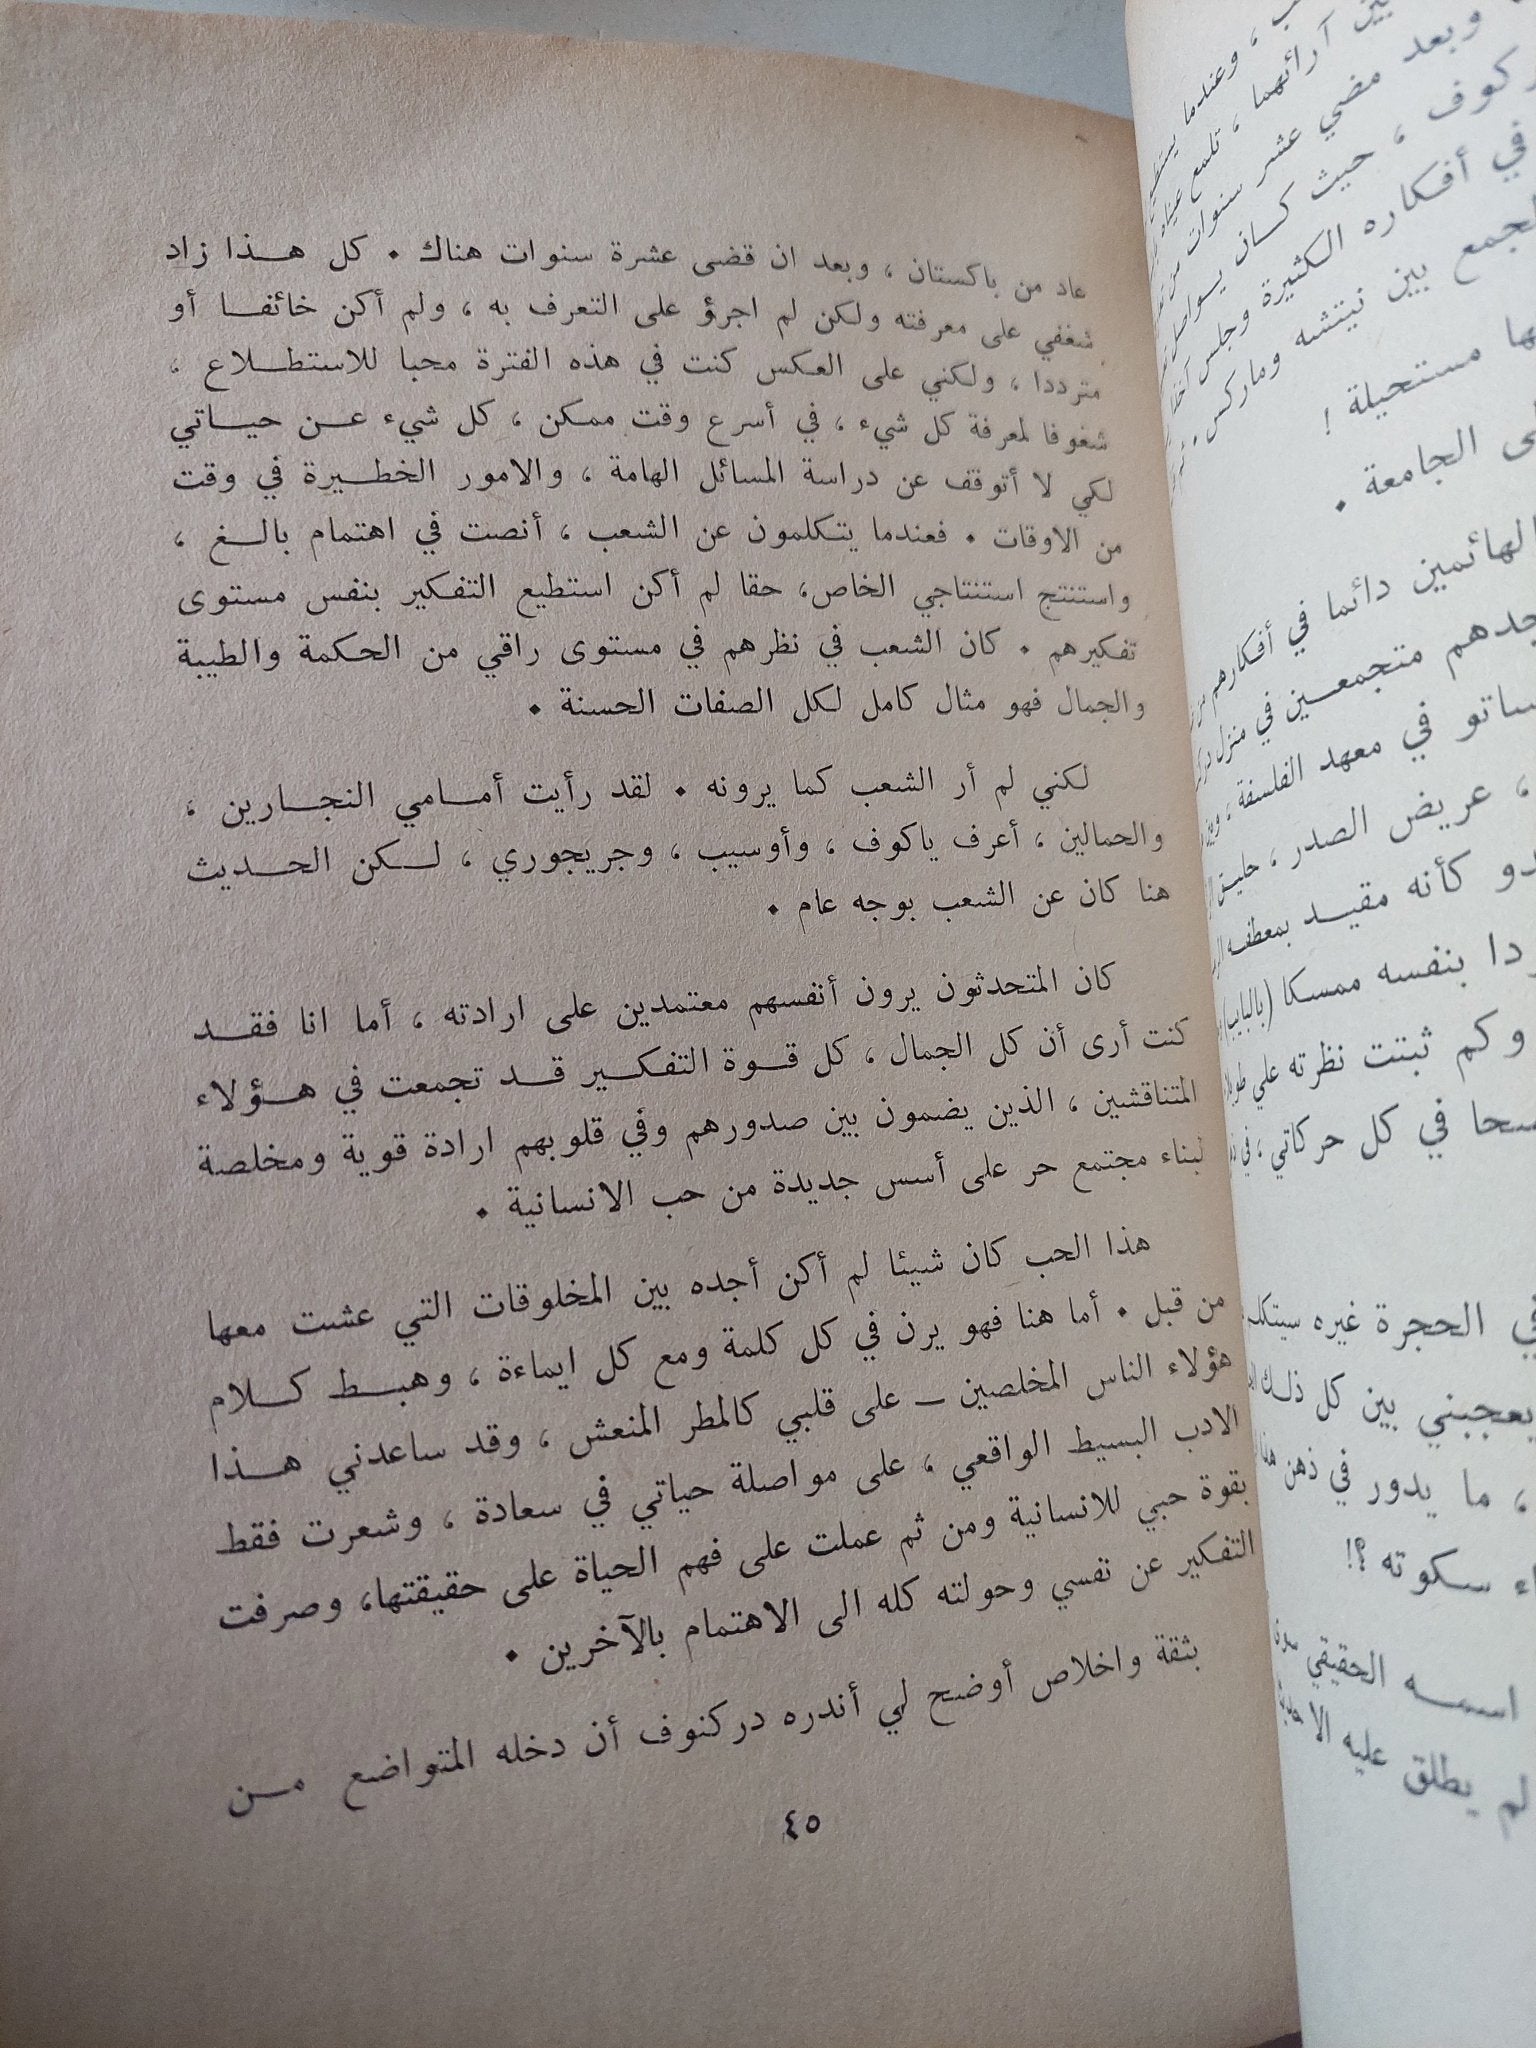 عاد من باكستان ، وبعد ان قضى عشرة سنوات هناك . كل هذا زاد
شغفي على معرفته ولكن لم اجرؤ على التعرف به ، ولم أكن خائفا أو
مترددا ، ولكني على العكس كنت في هذه الفترة محبا للاستطلاع ،
شغوفا لمعرفة كل شيء ، في أسرع وقت ممكن ، كل شيء عن حياتي
لكي لا أتوقف عن دراسة المسائل الهامة ، والامور الخطيرة في وقت
من الاوقات . فعندما يتكلمون عن الشعب ، أنصت في اهتمام بالغ ،
واستنتج استنتاجي الخاص، حقا لم أكن استطيع التفكير بنفس مستوى
تفكيرهم . كان الشعب في نظرهم في مستوى راقي من الحكمة والطيبة
والجمال فهو مثال كامل لكل الصفات الحسنة .
لكني لم أر الشعب كما يرونه . لقد رأيت أمامي النجارين ،
والحمالين ، أعرف ياكوف ، وأوسيب ، وجريجوري ، لكن الحديث
هنا كان عن الشعب بوجه عام .
كان المتحدثون يرون أنفسهم معتمدين على ارادته ، أما انا فقد
كنت أرى أن كل الجمال ، كل قوة التفكير قد تجمعت في هؤلاء
المتناقشين ، الذين يضمون بين صدورهم وفي قلوبهم ارادة قوية ومخلصة
لبناء مجتمع حر على أسس جديدة من حب الانسانية .
هذا الحب كان شيئا لم أكن أجده بين المخلوقات التي عشت معها
من قبل . أما هنا فهو يرن في كل كلمة ومع كل ايماءة ، وهبط كلام
هؤلاء الناس المخلصين — على قلبي كالمطر المنعش ، وقد ساعدني هذا
الادب البسيط الواقعي ، على مواصلة حياتي في سعادة ، وشعرت فقط
بقوة حبي للانسانية ومن ثم عملت على فهم الحياة على حقيقتها، وصرفت
التفكير عن نفسي وحولته كله الى الاهتمام بالآخرين .
بثقة واخلاص أوضح لي أندره دركنوف أن دخله المتواضع من
٤٥
، وعندما
بين آرائهما ، تلمع
وبعد مضي عشر سنوات
، حيث كان يواصل
في أفكاره الكثيرة وجلس
بين نيتشه وماركس .
مستحيلة !
الجامعة .
الهائمين دائما في أفكارهم
متجمعين في منزل
في معهد الفلسفة ،
، عريض الصدر ، حليق
كأنه مقيد بمعطفه
بنفسه ممسكا (بالباب)
وكم ثبتت نظرته علي
في كل حركاتي ،
الحجرة غيره
يعجبني بين كل ذلك
، ما يدور في ذهن
سكوته ؟!
اسمه الحقيقي
لم يطلق عليه